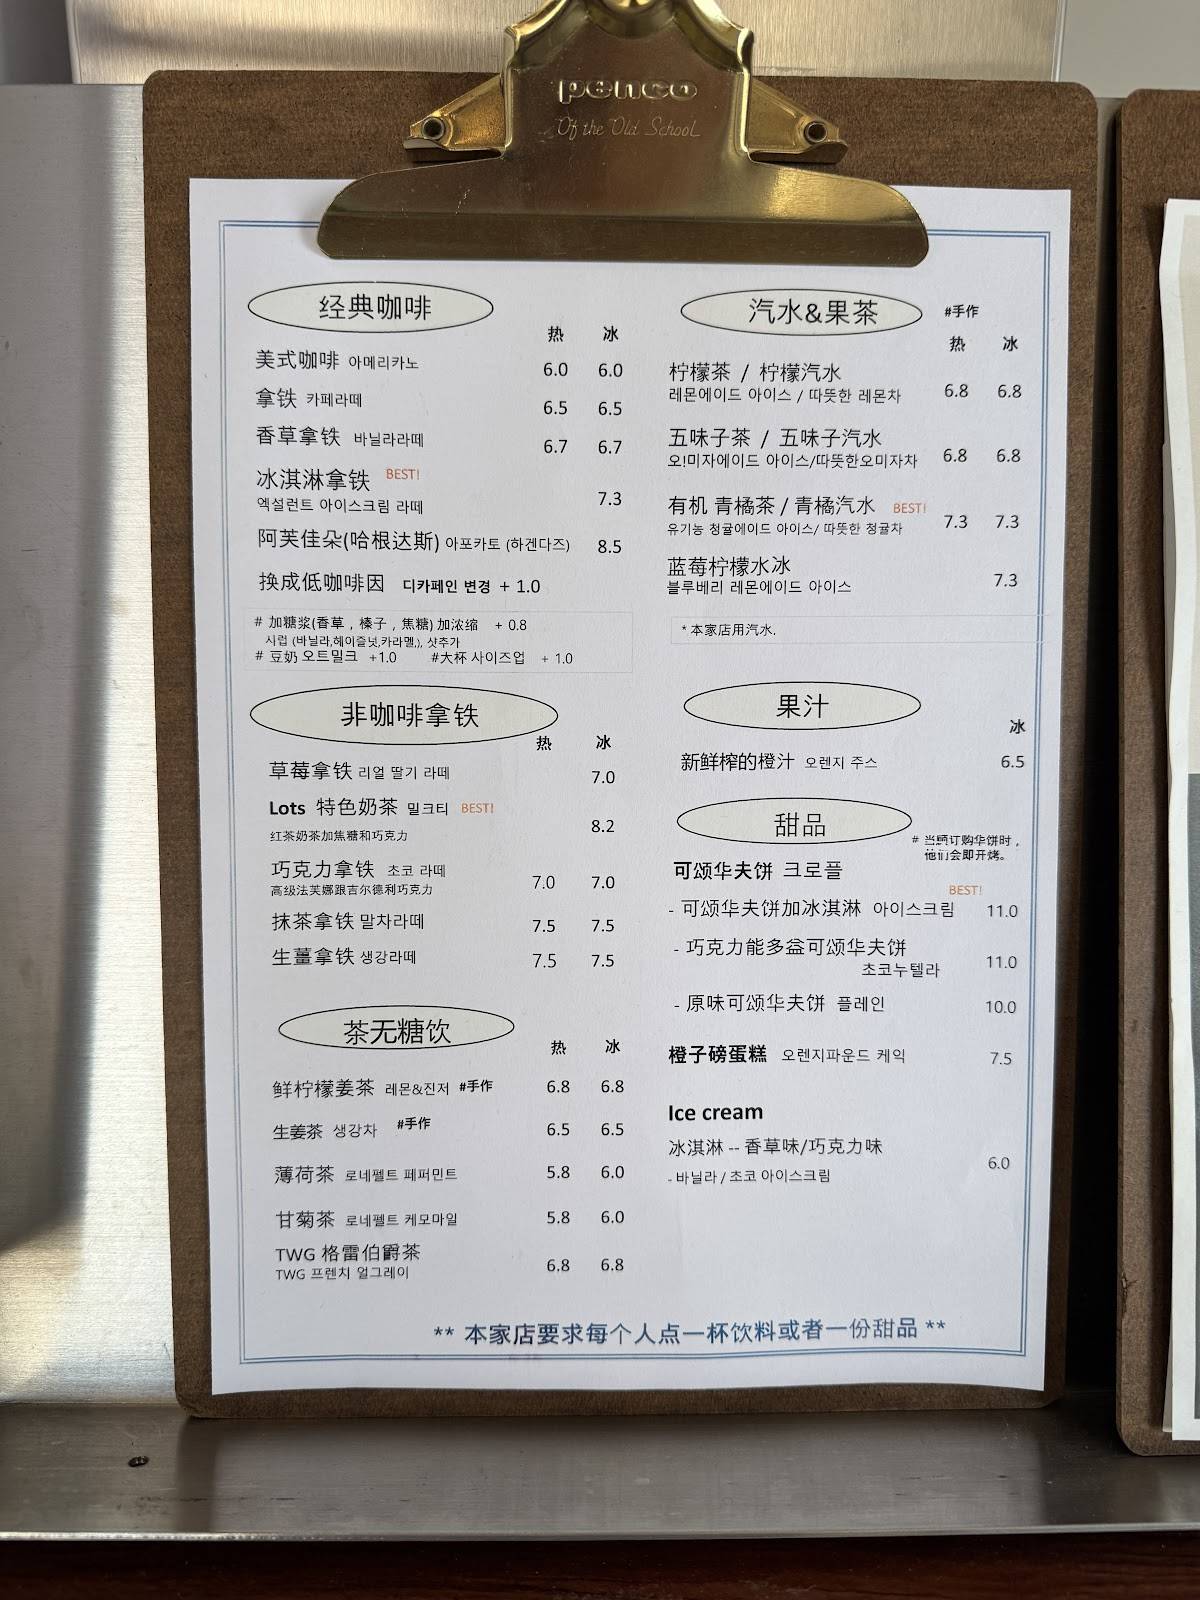 penco
Of the Old School
经典咖啡
热 冰
美式咖啡 아메리카노 6.0 6.0
拿铁 카페라떼 6.5 6.5
香草拿铁 바닐라라떼 6.7 6.7
冰淇淋拿铁 BEST!
엑설런트 아이스크림 라떼 7.3
阿芙佳朵(哈根达斯) 아포카토 (하겐다즈) 8.5
换成低咖啡因 디카페인 변경 + 1.0
# 加糖浆(香草，榛子，焦糖) 加浓缩 + 0.8
시럽 (바닐라,헤이즐넛,카라멜,), 샷추가
# 豆奶 오트밀크 +1.0 #大杯 사이즈업 + 1.0
非咖啡拿铁
热 冰
草莓拿铁 리얼 딸기 라떼 7.0
Lots 特色奶茶 밀크티 BEST!
红茶奶茶加焦糖和巧克力 8.2
巧克力拿铁 초코 라떼 7.0 7.0
高级法芙娜跟吉尔德利巧克力
抹茶拿铁 말차라떼 7.5 7.5
生薑拿铁 생강라떼 7.5 7.5
茶无糖饮
热 冰
鲜柠檬姜茶 레몬&진저 #手作 6.8 6.8
生姜茶 생강차 #手作 6.5 6.5
薄荷茶 로네펠트 페퍼민트 5.8 6.0
甘菊茶 로네펠트 케모마일 5.8 6.0
TWG 格雷伯爵茶
TWG 프렌치 얼그레이 6.8 6.8
汽水&果茶 #手作
热 冰
柠檬茶 / 柠檬汽水
레몬에이드 아이스 / 따뜻한 레몬차 6.8 6.8
五味子茶 / 五味子汽水
오!미자에이드 아이스/따뜻한오미자차 6.8 6.8
有机 青橘茶 / 青橘汽水 BEST!
유기농 청귤에이드 아이스/ 따뜻한 청귤차 7.3 7.3
蓝莓柠檬水冰
블루베리 레몬에이드 아이스 7.3
* 本家店用汽水.
果汁
冰
新鲜榨的橙汁 오렌지 주스 6.5
甜品
# 当顾订购华饼时，
他们会即开烤。
可颂华夫饼 크로플
BEST!
- 可颂华夫饼加冰淇淋 아이스크림 11.0
- 巧克力能多益可颂华夫饼
초코누텔라 11.0
- 原味可颂华夫饼 플레인 10.0
橙子磅蛋糕 오렌지파운드 케익 7.5
Ice cream
冰淇淋 -- 香草味/巧克力味
- 바닐라 / 초코 아이스크림 6.0
** 本家店要求每个人点一杯饮料或者一份甜品 **